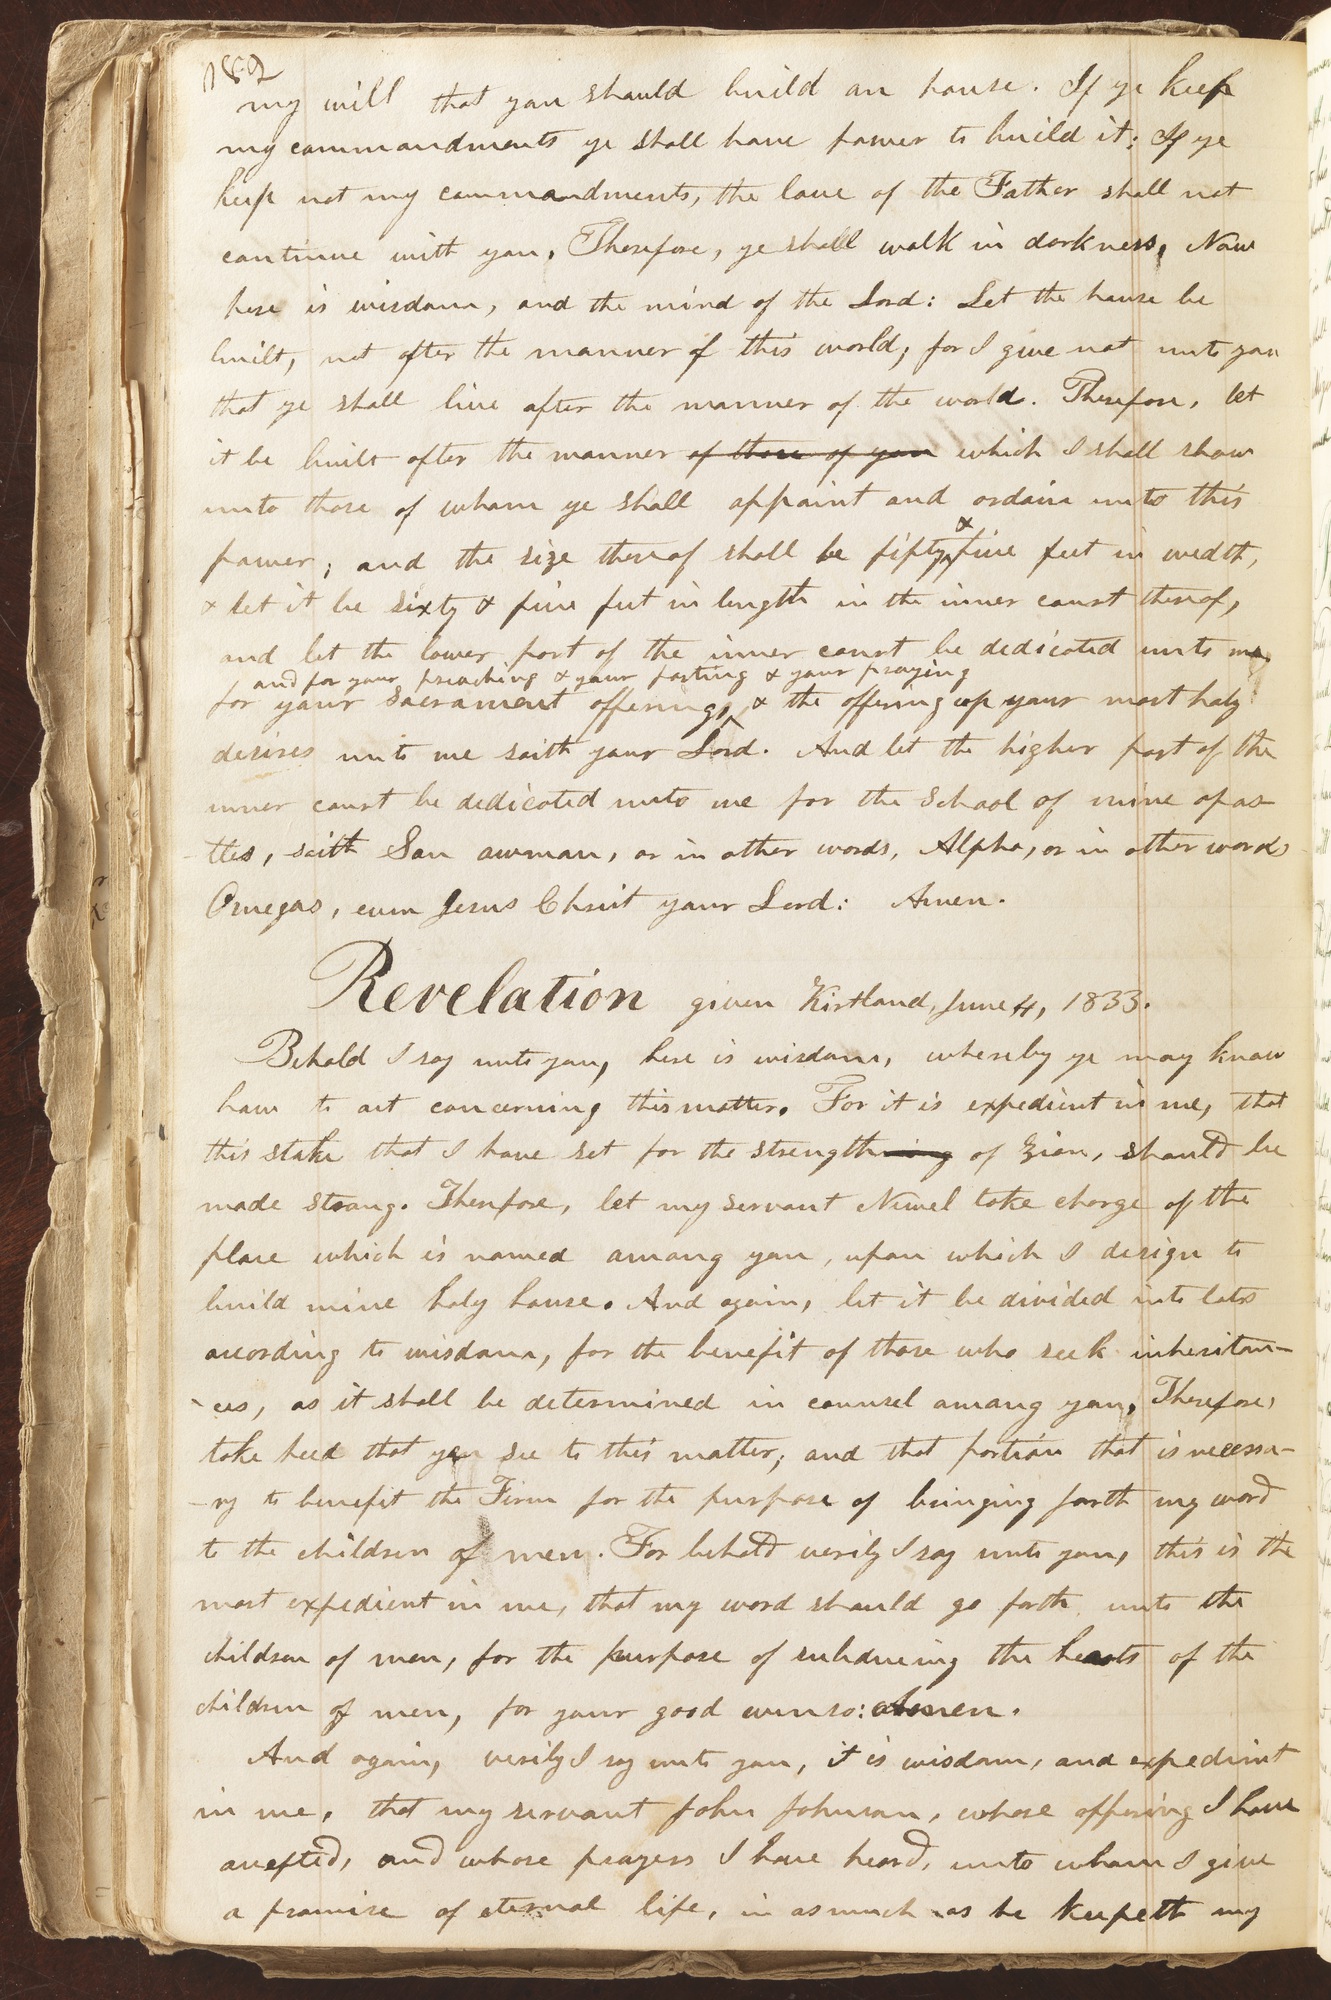 182
my will that you should build an house. If ye keep
my commandments ye shall have power to build it; If ye
keep not my commandments, the love of the Father shall not
continue with you, Therefore, ye shall walk in darkness. Now
here is wisdom, and the mind of the Lord: Let the house be
built, not after the manner of this world; for I give not unto you
that ye shall live after the manner of the world. Therefore, let
it be built after the manner of those of you which I shall show
unto those of whom ye shall appoint and ordain unto this
power; and the size thereof shall be fifty & five feet in wedth,
& let it be sixty & five feet in length in the inner court thereof,
and let the lower part of the inner court be dedicated unto me
and for your preaching & your fasting & your praying
for your Sacrament offerings, & the offering up your most holy
desires unto me saith your Lord. And let the higher part of the
inner court be dedicated unto me for the School of mine apos-
tles, saith Son awman, or in other words, Alpha, or in other words
Omegas, even Jesus Christ your Lord: Amen.
Revelation given Kirtland, June 4, 1833.
Behold I say unto you, here is wisdom, whereby ye may know
how to act concerning this matter. For it is expedient in me, that
this stake that I have set for the strengthening of Zion, should be
made strong. Therefore, let my servant Newel take charge of the
place which is named among you, upon which I design to
build mine holy house. And again, let it be divided into lots
according to wisdom, for the benefit of those who seek inheritan-
-ces, as it shall be determined in counsel among you. Therefore,
take heed that ye see to this matter; and that portion that is necessa-
-ry to benefit the Firm for the purpose of bringing forth my word
to the children of men. For behold verily I say unto you, this is the
most expedient in me, that my word should go forth unto the
children of men, for the purpose of subduing the hearts of the
children of men, for your good even so: Amen.
And again, verily I say unto you, it is wisdom, and expedient
in me, that my servant John Johnson, whose offering I have
accepted, and whose prayers I have heard, unto whom I give
a promise of eternal life, in as much as he keepeth my